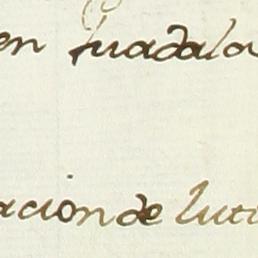 en Guadala
acion de Luti